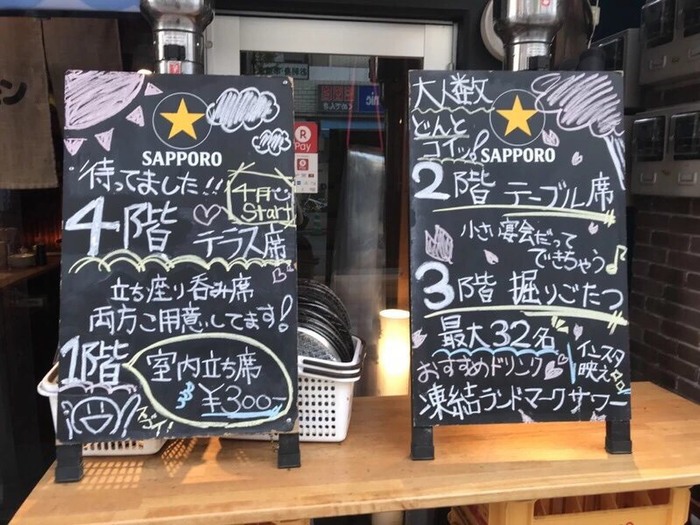 SAPPORO
待ってました!!
4月〜
Start
4階 テラス席
立ち座り呑み席
両方ご用意してます!
1階 室内立ち席
¥300-
スゴイ!
R
Pay
大人数
どんと
コイッ!
SAPPORO
2階 テーブル席
小さい宴会だって
できちゃう♪
3階 掘りごたつ
最大32名
おすすめドリンク
インスタ
映え
凍結ランドマークサワー